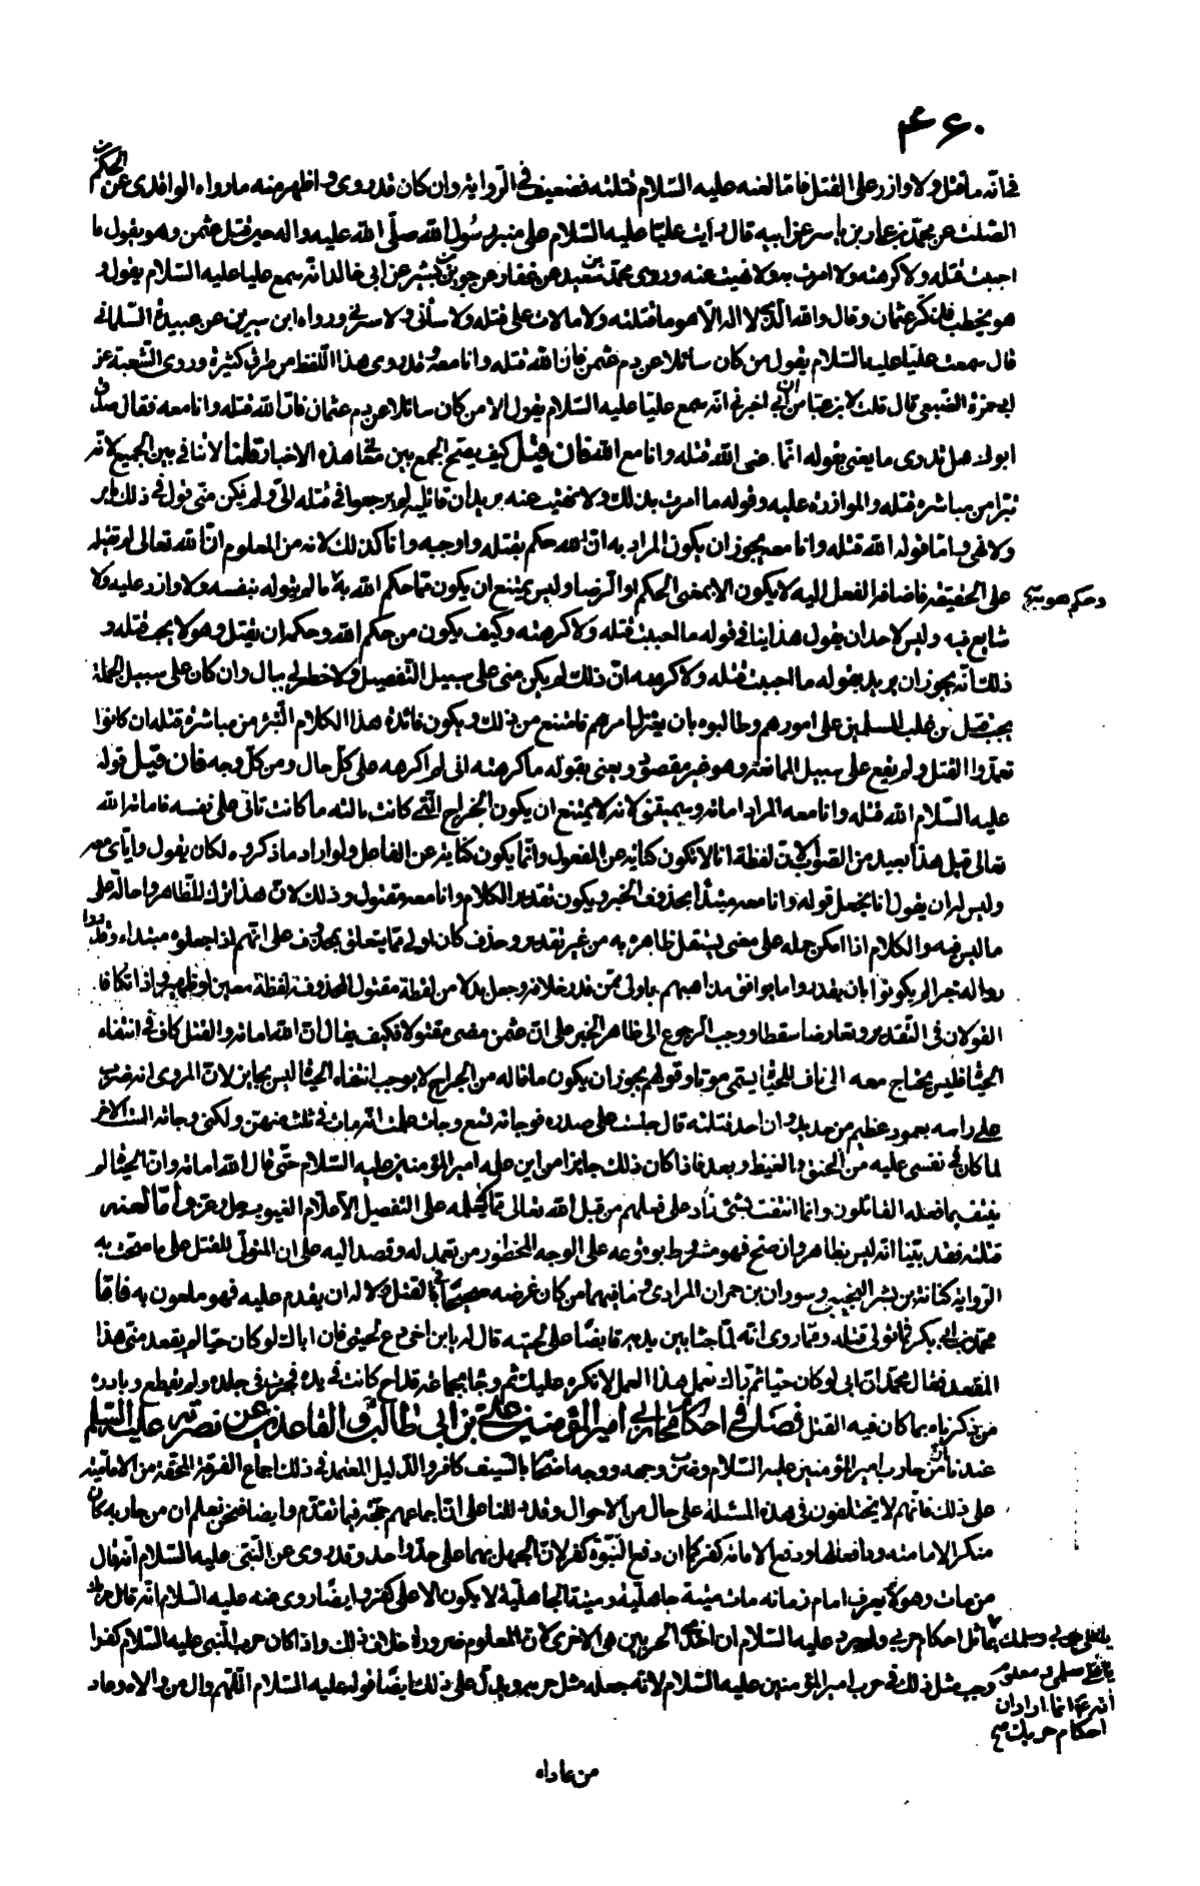 ۴۶۰
في انه ما قتل ولا وازر على القتل فاما لعنه عليه السلام قتلته فضعيف في الرواية وان كان قد روى واظهر منه ما رواه الواقدي عن الحكم بن
الصلت عن محمد بن عمار بن ياسر عن ابيه قال رأيت عليا عليه السلام على منبر رسول الله صلى الله عليه واله حين قتل عثمن وهو يقول ما
احببت قتله ولا كرهته ولا امرت به ولا نهيت عنه وروى محمد بن سعيد عن عفان عن جوين بن بشير عن ابي خالد انه سمع عليا عليه السلام يقول و
هو يخطب فذكر عثمان وقال والله الذي لا اله الا هو ما قتلته ولا مالات على قتله ولا ساءني ولا سرني ورواه ابن سيرين عن عبيدة السلماني
قال سمعت عليا عليه السلام يقول من كان سائلا عن دم عثمن فان الله قتله وانا معه وقد روى هذا اللفظ من طرق كثيرة وروى الشعبة عن
ابي حمزة الضبعي قال قلت لابن عباس ان ابي اخبرني انه سمع عليا عليه السلام يقول الا من كان سائلا عن دم عثمان فان الله قتله وانا معه فقال صدق
ابوك هل تدري ما يعني بقوله انما عنى الله قتله وانا مع الله فان قيل كيف يصح الجمع بين معاني هذه الاخبار قلنا لا تنافي بين الجميع لانه
تبرأ من مباشرة قتله والموازرة عليه وقوله ما امرت بذلك ولا نهيت عنه يريد ان قاتليه لم يرجعوا في قتله الي ولم يكن مني قول في ذلك بامر
ولا نهي واما قوله الله قتله وانا معه يجوز ان يكون المراد به ان الله حكم بقتله واوجبه وانا كذلك لانه من المعلوم ان الله تعالى لم يقتله
على الحقيقة فاضافة الفعل اليه لا يكون الا بمعنى الحكم او الرضا وليس يمتنع ان يكون مما حكم الله به ما لم يتوله بنفسه ولا وازر عليه ولا
شايع فيه وليس لاحد ان يقول هذا ينافي قوله ما احببت قتله ولا كرهته وكيف يكون من حكم الله وحكمه ان يقتل وهو لا يحب قتله و
ذلك انه يجوز ان يريد بقوله ما احببت قتله ولا كرهته ان ذلك لم يكن مني على سبيل التفصيل ولا خطر لي ببال وان كان على سبيل الجملة
يحب قتل من غلب المسلمين على امورهم وطالبوه بان يعتزل امرهم فامتنع من ذلك ويكون فائدة هذا الكلام التبرء من مباشرة قتله ان كانوا
تعمدوا القتل ولم يقع على سبيل الممانعة وهو غير مقصود ويعني بقوله ما كرهته اني لم اكرهه على كل حال ومن كل وجه فان قيل قوله
عليه السلام الله قتله وانا معه المراد اماته وسيميتني لانه لا يمتنع ان يكون الجراح التي كانت نالته ما كانت تاتي على نفسه فاماته الله
تعالى قيل هذا بعيد من الصواب لان لفظة انا لا تكون كناية عن المفعول وانما يكون كناية عن الفاعل ولو اراد ما ذكروه لكان يقول واياي معه
وليس له ان يقول انا نجعل قوله وانا معه مبتدأ محذوف الخبر ويكون تقدير الكلام وانا معه مقتول وذلك لان هذا ترك للظاهر واحالة على
ما ليس فيه والكلام اذا امكن حمله على معنى يستقل ظاهره به من غير تقدير وحذف كان اولى مما يتعلق بمحذوف على انهم اذا جعلوه مبتداء وقدروا
له خبرا لم يكونوا بان يقدروا ما يوافق مذاهبهم باولى ممن قدر خلافه وجعل بدلا من لفظة مقتول المحذوفة لفظة معين او ظهير واذا تكافا
القولان في التقدير وتعارضا سقطا ووجب الرجوع الى ظاهر الخبر على ان عثمن مضى مقتولا فكيف يقال ان الله اماته والقتل كاف في انتفاء
الحياة فليس يحتاج معه الى ناف للحياة يسمى موتا وقولهم يجوز ان يكون ما ناله من الجراح لا يوجب انتفاء الحياة ليس بجايز لان المروي انه ضرب
على راسه بعمود عظيم من حديد وان احد قتلته قال جلست على صدره فوجاته تسع وجات علمت انه مات في ثلث منهن ولكني وجاته الست الاخر
لما كان في نفسي عليه من الحنق والغيظ وبعد فاذا كان ذلك جايزا من اين علمه امير المؤمنين عليه السلام حتى قال الله اماته وان الحياة لم
ينتف بما فعله القاتلون وانما انتفت بشيء زاد على فعلهم من قبل الله تعالى مما لا يعلمه على التفصيل الا علام الغيوب جل وعز واما لعنه
قتلته فقد بينا انه ليس بظاهر وان صح فهو مشروط بوقوعه على الوجه المحظور من تعمد له وقصد اليه على ان المتولي للقتل على ما صحت به
الرواية كنانة بن بشر التجيبي وسودان بن حمران المرادي وما فيهما من كان غرضه صحيحا في القتل ولا له ان يقدم عليه فهو ملعون به فاما
محمد بن ابي بكر فما تولى قتله ومما روى انه لما جثا بين يديه قابضا على لحيته قال له يا ابن اخي دع لحيتي فان اباك لو كان حيا لم يقعد مني هذا
المقعد فقال محمد ان ابي لو كان حيا ثم يراك تعمل هذا العمل لانكره عليك ثم وجأه بجماعة قداح كانت في يده فحزت في جلده ولم يقطع وبادره
من ذكرناه بما كان فيه القتل فصل في احكام محاربي امير المؤمنين علي بن ابي طالب والقاعدين عن نصرته عليه السلم
عندنا ان من حارب امير المؤمنين عليه السلام وضرب وجهه ووجه اصحابه بالسيف كافر والدليل المعتمد في ذلك اجماع الفرقة المحقة من الامامية
على ذلك فانهم لا يختلفون في هذه المسئلة على حال من الاحوال وقد دللنا على ان اجماعهم حجة فيما تقدم وايضا فنحن نعلم ان من حاربه كان
منكرا لامامته ودافعا لها ودفع الامامة كفر كما ان دفع النبوة كفر لان الجهل بهما على حد واحد وقد روى عن النبي عليه السلام انه قال
من مات وهو لا يعرف امام زمانه مات ميتة جاهلية وميتة الجاهلية لا يكون الا على كفر وايضا روى عنه عليه السلام انه قال حربك
يا علي حربي وسلمك
يا علي سلمي ومعلوم
انه عم انما اراد ان
احكام حربك صح
تماثل احكام حربي ولم يرد عليه السلام ان احدى الحربين هي الاخرى لان المعلوم ضرورة خلاف ذلك واذا كان حرب النبي عليه السلام كفرا
وجب مثل ذلك في حرب امير المؤمنين عليه السلام لانه جعله مثل حربه ويدل على ذلك ايضا قوله عليه السلام اللهم وال من والاه وعاد
من عاداه